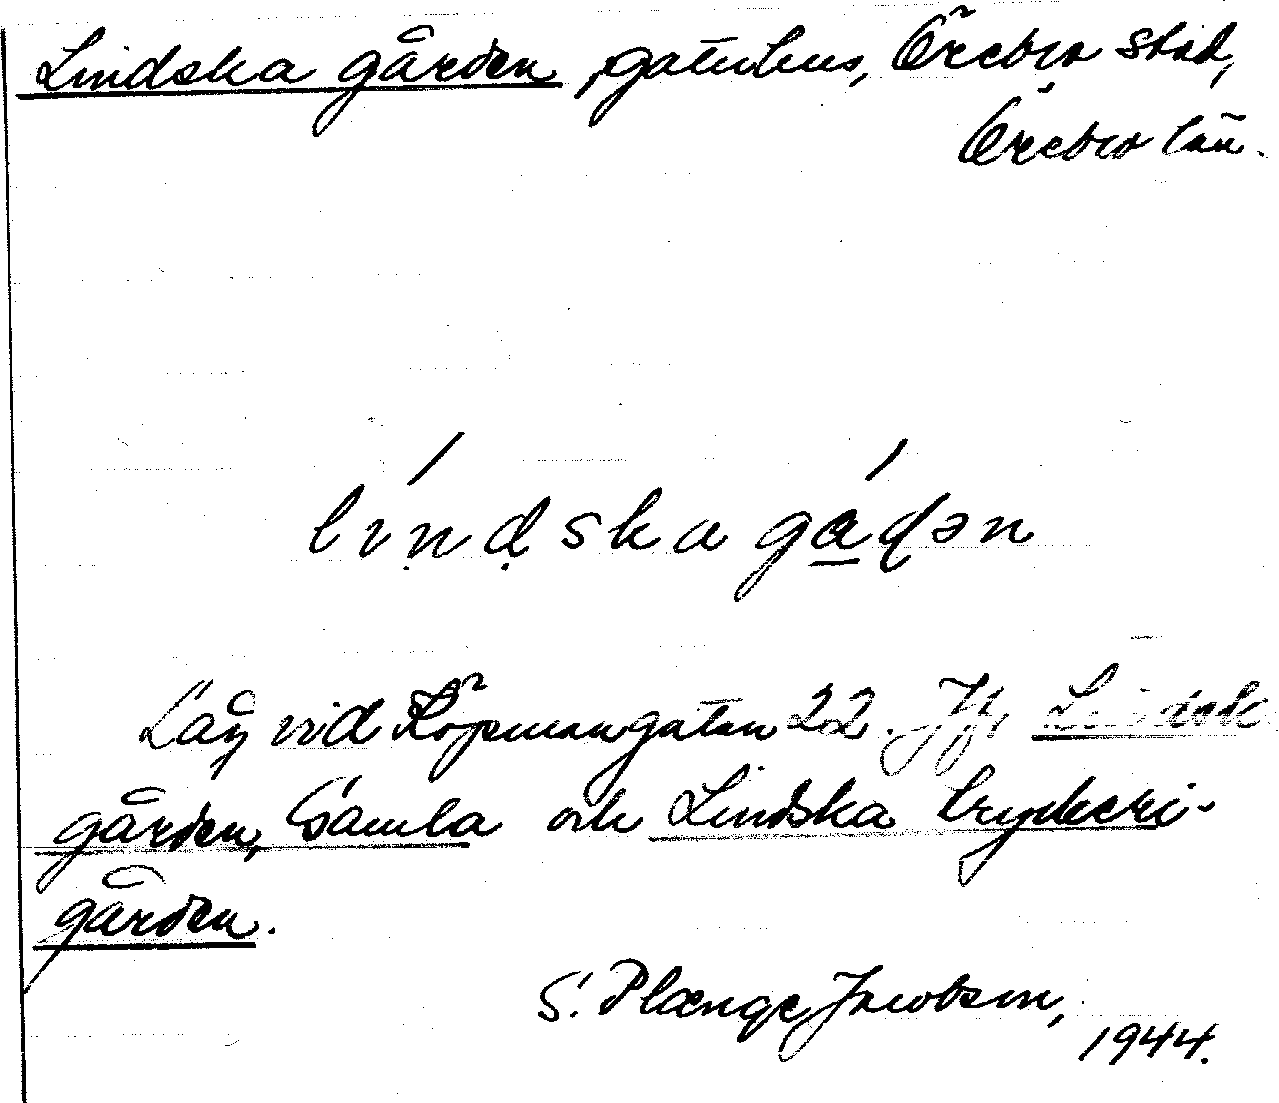 Lindska gården, gatuhus, Örebro stad,
Örebro län.
líṇḍska gá̱ɖən
Låg vid Köpmangatan 22. Jfr Lindska
gården, Gamla och Lindska tryckeri-
gården.
S. Plænge Jacobson,
1944.